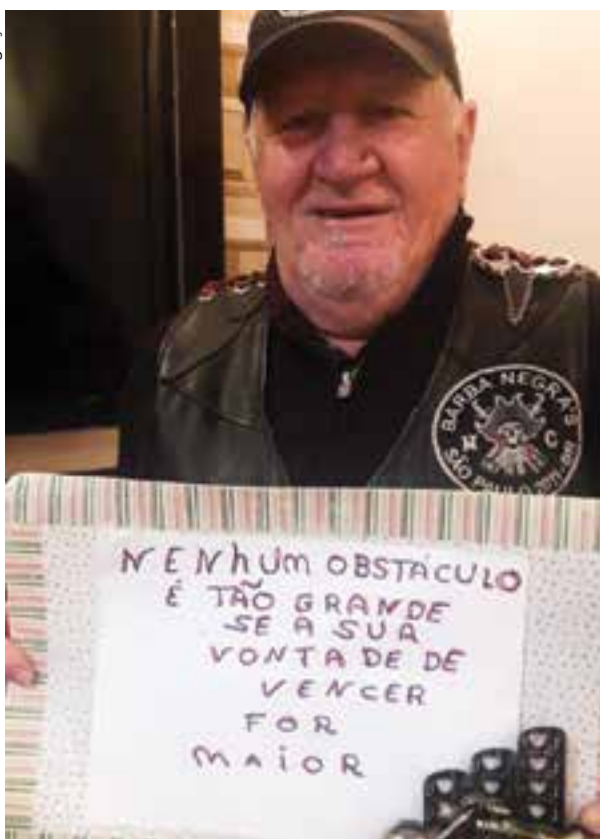 BARBA NEGRA'S
M C
SÃO PAULO
NENHUM OBSTÁCULO
É TÃO GRANDE
SE A SUA
VONTADE DE
VENCER
FOR
MAIOR